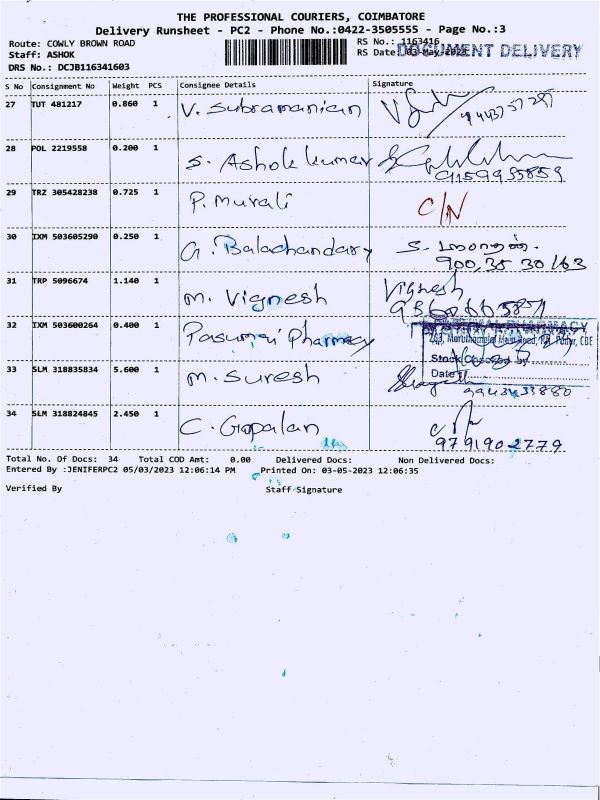 THE PROFESSIONAL COURIERS, COIMBATORE
Delivery Runsheet - PC2 - Phone No.:0422-3505555 - Page No.:3
Route: COWLY BROWN ROAD
Staff: ASHOK
DRS No.: DCJB116341603
RS No.: 1163416
RS Date: 03-May-2023
DOCUMENT DELIVERY
S No Consignment No Weight PCS Consignee Details Signature
27 TUT 481217 0.860 1 V. Subramanian
28 POL 2219558 0.200 1 S. Ashok kumar
29 TRZ 305428238 0.725 1 P. Murali C/N
30 IXM 503605290 0.250 1 G. Balachandary
900 35 30163
31 TRP 5096674 1.140 1 M. Vignesh Vignesh
32 IXM 503600264 0.400 1 Pasumai Pharmacy
PHARMACY
Main Road, CBE
Stock Checked by
Date
33 SLM 318835834 5.600 1 M. Suresh
34 SLM 318824845 2.450 1 C. Gopalan
9791902779
Total No. Of Docs: 34 Total COD Amt: 0.00 Delivered Docs: Non Delivered Docs:
Entered By :JENIFERPC2 05/03/2023 12:06:14 PM Printed On: 03-05-2023 12:06:35
Verified By Staff Signature